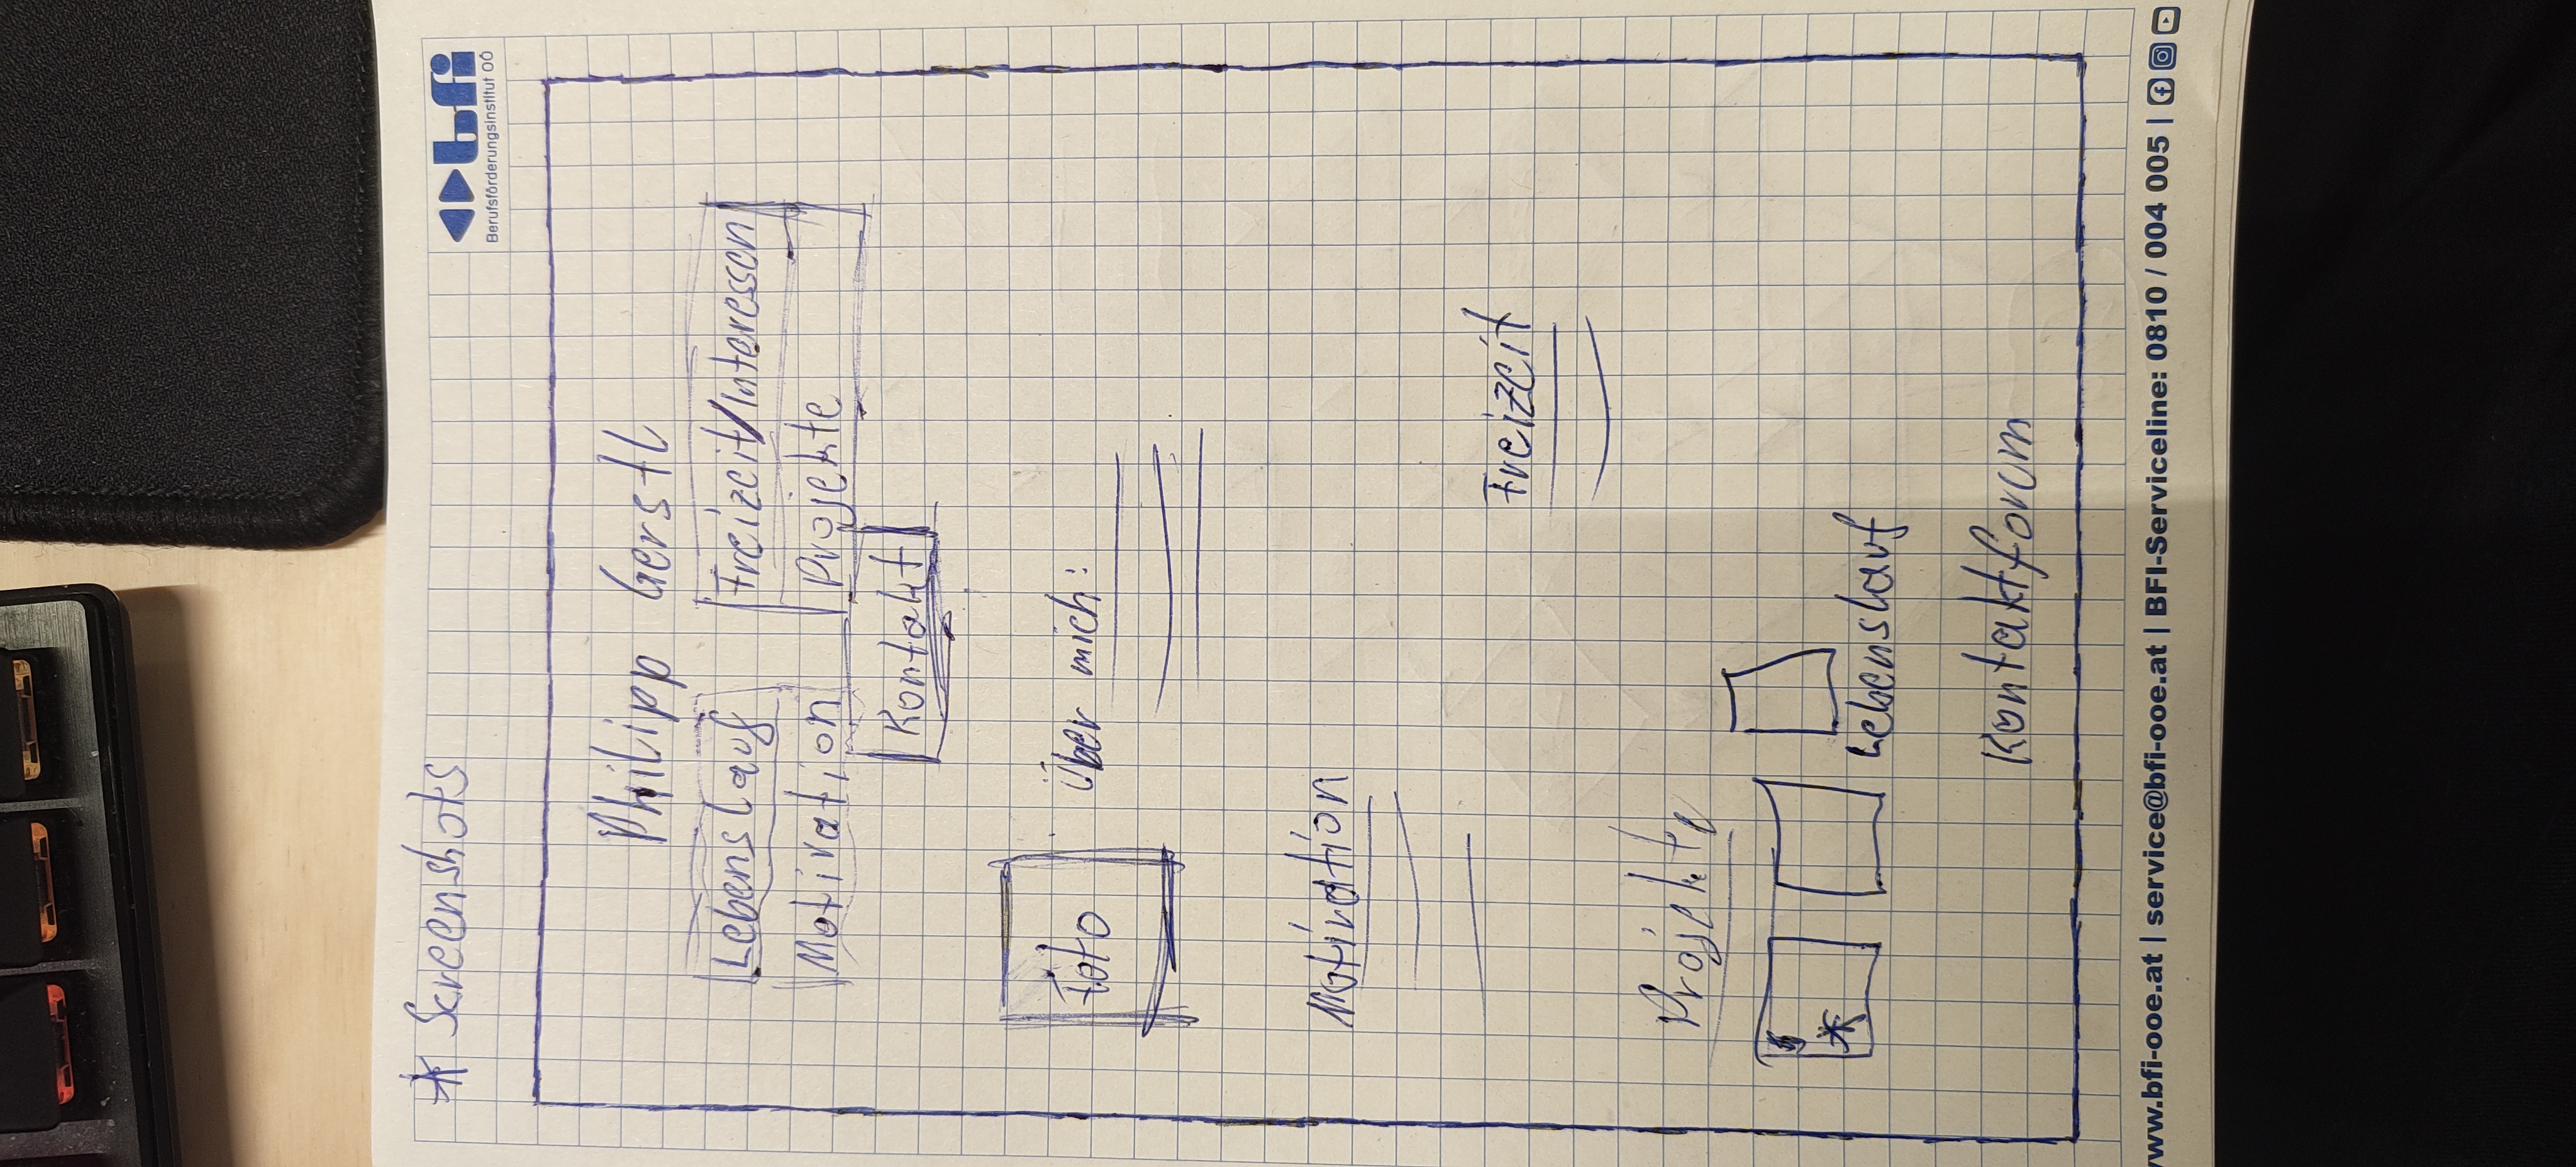 * Screenshots
bfi
Berufsförderungsinstitut OÖ
Philipp Gerstl
Lebenslauf Freizeit/Interessen
Motivation Projekte
Kontakt
Foto Über mich:
Motivation
Freizeit
Projekte
*
Lebenslauf
Kontaktforum
www.bfi-ooe.at | service@bfi-ooe.at | BFI-Serviceline: 0810 / 004 005 |